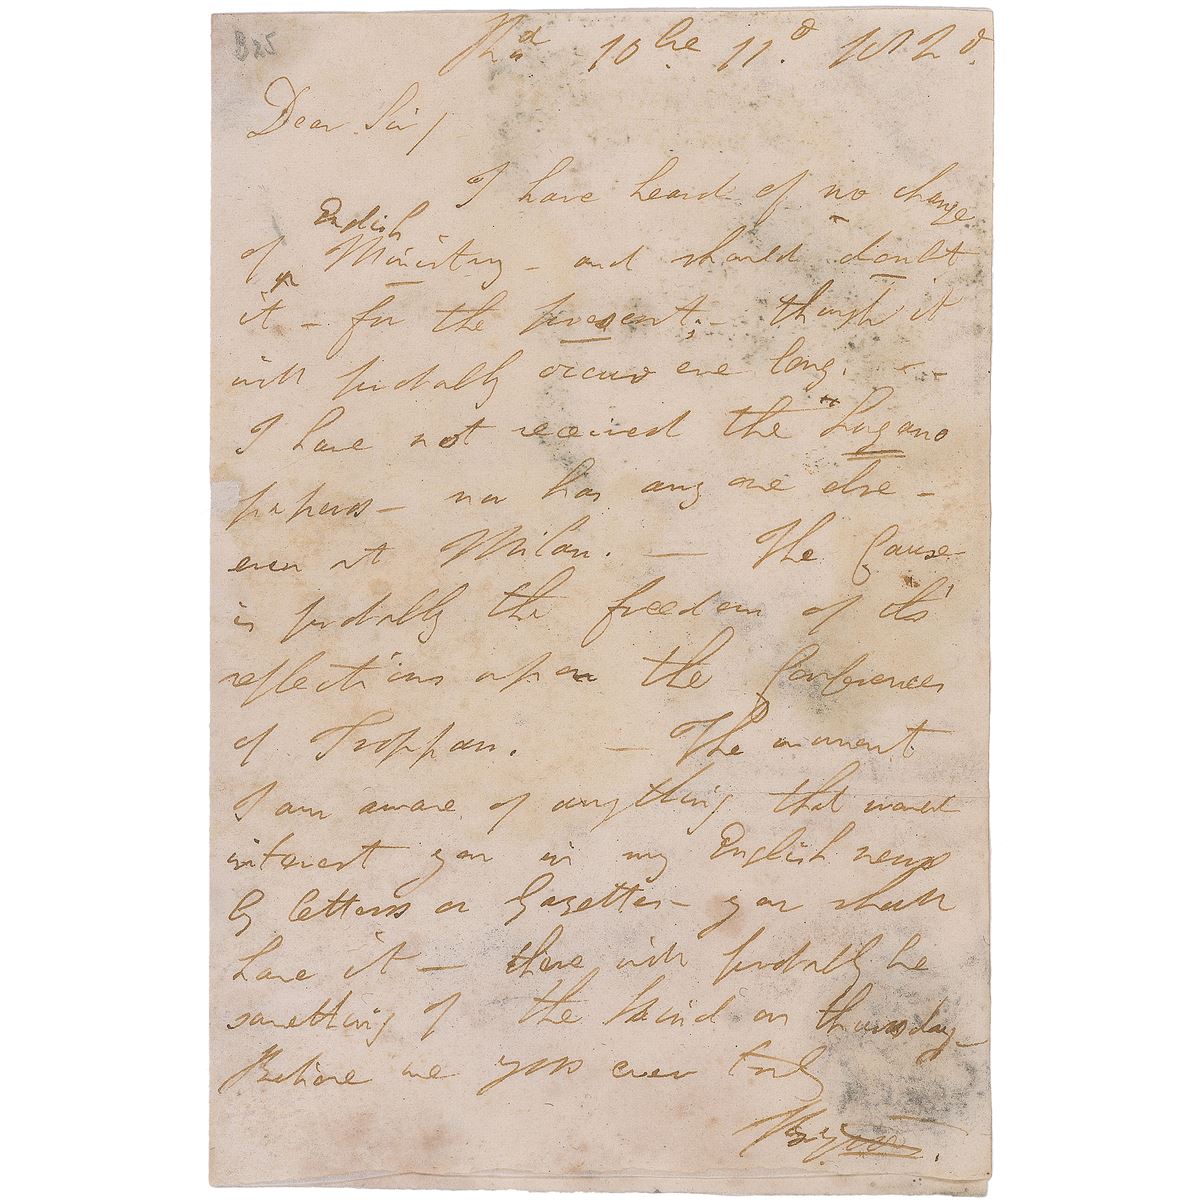 B25
Rd 10bre 11.o 1820.
Dear Sir /
I have heard of no change
English
of Ministry - and should doubt
it - for the present; - though it
will probably occur ere long. - -
I have not received the Lugano
papers - nor has any one else -
even at Milan. — The Cause
is probably the freedom of its'
reflections upon the Conferences
of Troppau. — The moment
I am aware of anything that would
interest you in my English news
by letters or Gazettes - you shall
have it - there will probably be
something of the kind on thursday -
Believe me yrs ever truly
Byron.